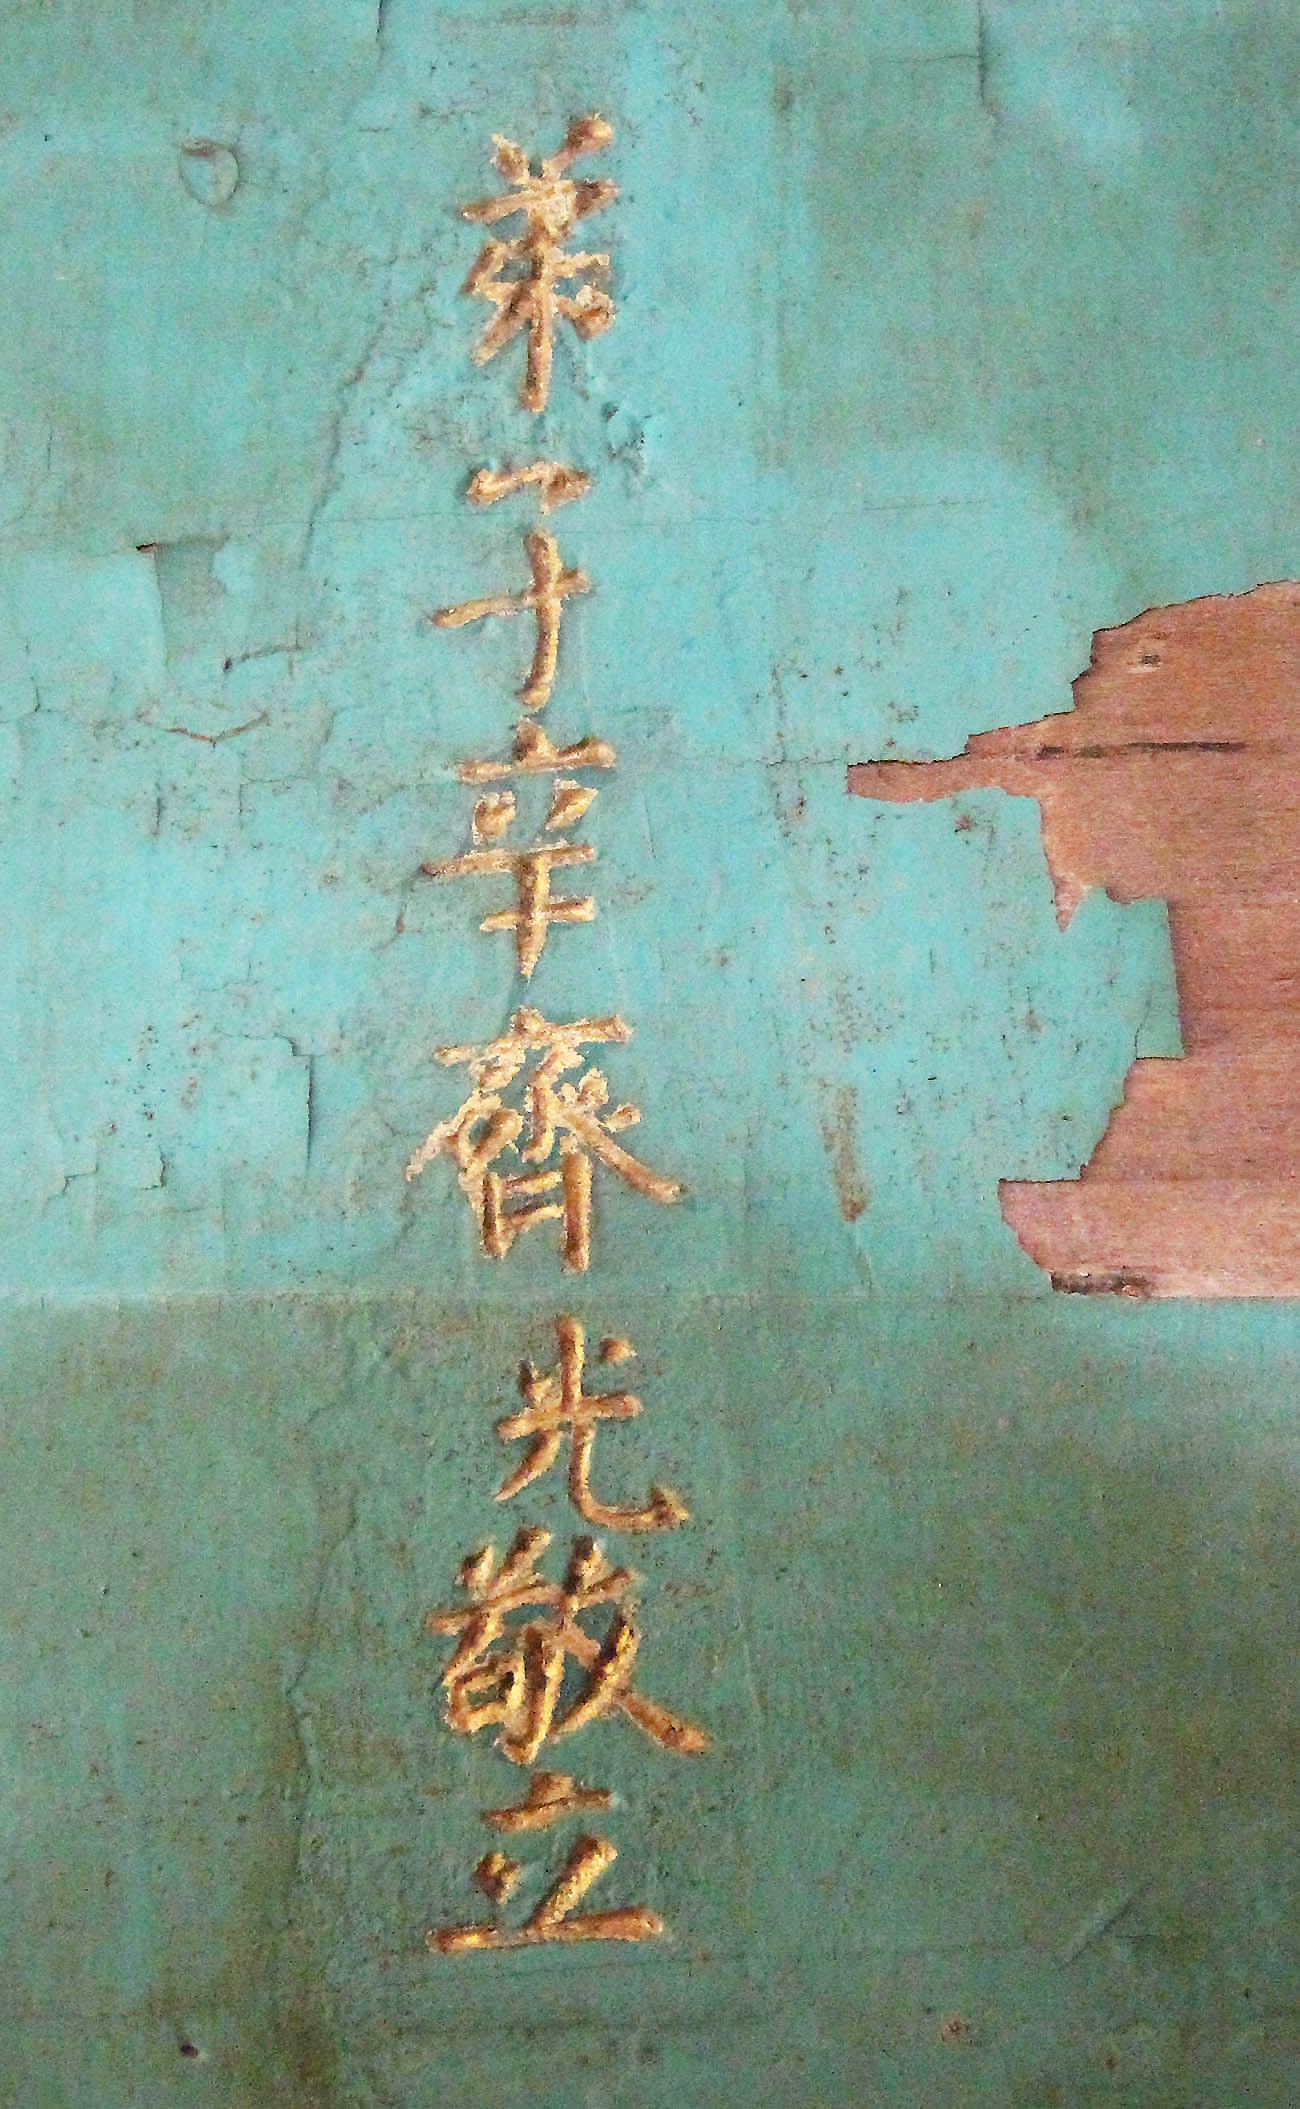 弟子辛齊光敬立